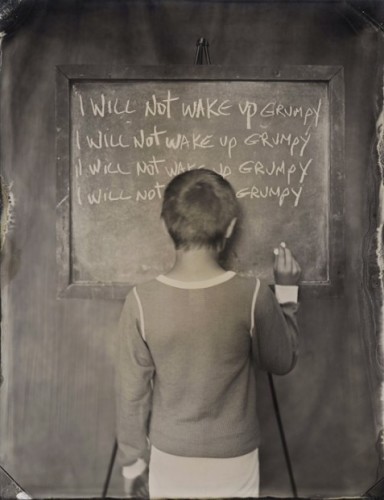 I WILL NOT WAKE UP GRUMPY
I WILL NOT WAKE UP GRUMPY
I WILL NOT WAKE UP GRUMPY
I WILL NOT GRUMPY